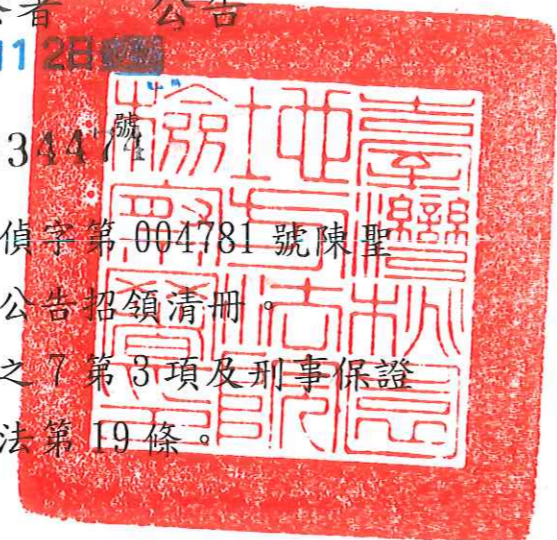 者 公告
12日
34474號
偵字第 004781 號陳聖
公告招領清冊。
之 7 第 3 項及刑事保證
法第 19 條。
臺灣桃園地方法院檢察署印